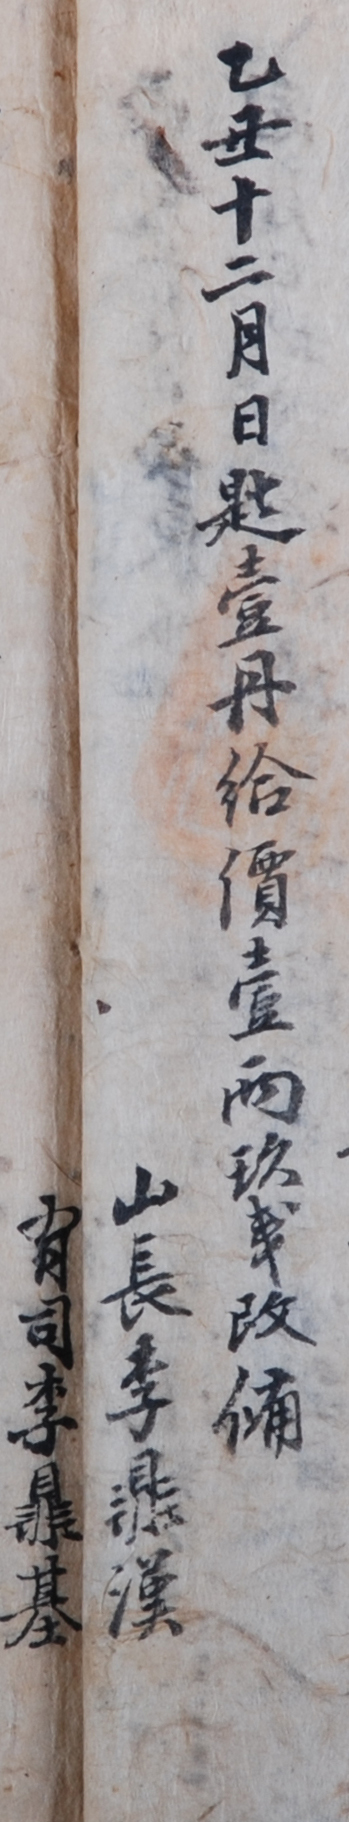 乙丑十二月日匙壹丹給價壹兩玖戔改備
山長李鼎漢
有司李鼎基